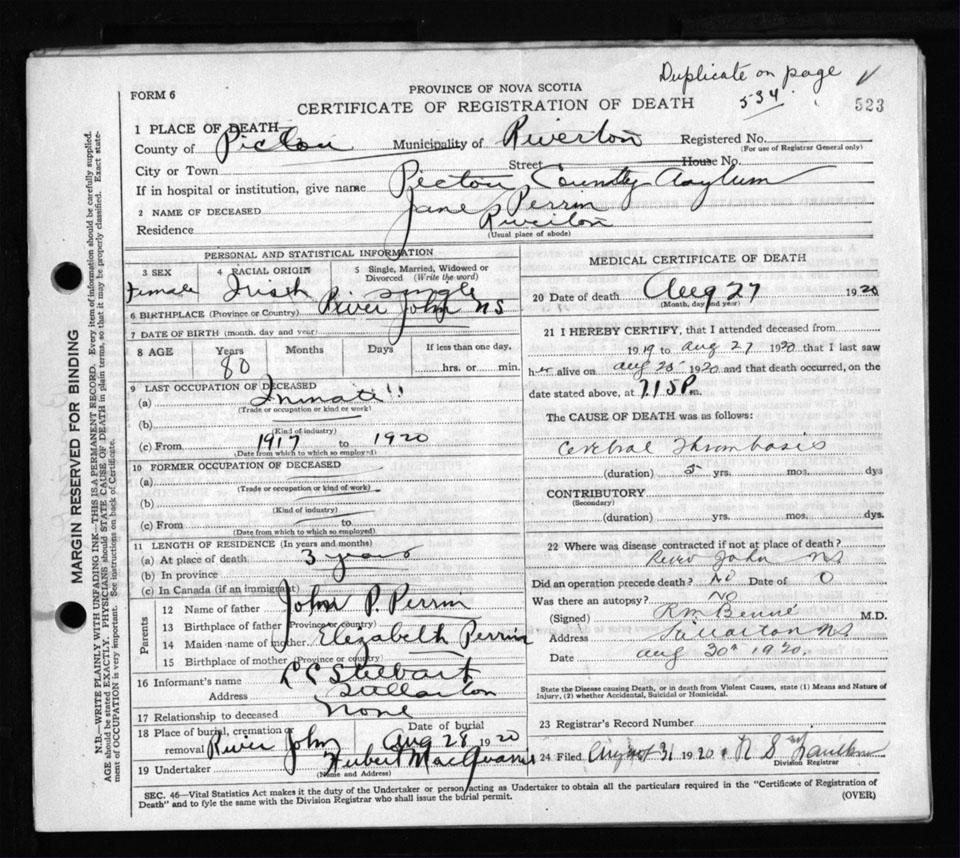 Duplicate on page
534
523
FORM 6
PROVINCE OF NOVA SCOTIA
CERTIFICATE OF REGISTRATION OF DEATH
1 PLACE OF DEATH—
County of Pictou Municipality of Riverton Registered No.
(For use of Registrar General only)
City or Town Street House No.
If in hospital or institution, give name Pictou County Asylum
2 NAME OF DECEASED Jane Perrin
Residence Riverton
(Usual place of abode)
PERSONAL AND STATISTICAL INFORMATION
3 SEX 4 RACIAL ORIGIN 5 Single, Married, Widowed or Divorced (Write the word)
Female Irish Single
6 BIRTHPLACE (Province or Country) River John NS
7 DATE OF BIRTH (month, day and year)
8 AGE Years Months Days If less than one day,
80 hrs. or min.
9 LAST OCCUPATION OF DECEASED
(a) Inmate
(Trade or occupation or kind of work)
(b)
(Kind of industry)
(c) From 1917 to 1920
(Date from which to which so employed)
10 FORMER OCCUPATION OF DECEASED
(a)
(Trade or occupation or kind of work)
(b)
(Kind of industry)
(c) From to
(Date from which to which so employed)
11 LENGTH OF RESIDENCE (In years and months)
(a) At place of death 3 years
(b) In province
(c) In Canada (if an immigrant)
Parents
12 Name of father John P. Perrin
13 Birthplace of father (Province or country)
14 Maiden name of mother Elezabeth Perrin
15 Birthplace of mother (Province or country)
16 Informant's name
Address
17 Relationship to deceased None
18 Place of burial, cremation or removal River John Date of burial Aug 28 1920
19 Undertaker
(Name and Address)
MEDICAL CERTIFICATE OF DEATH
20 Date of death Aug 27 1920
(Month, day and year)
21 I HEREBY CERTIFY, that I attended deceased from
1919 to Aug 27 1920 that I last saw
her alive on Aug 25 1920 and that death occurred, on the
date stated above, at m.
The CAUSE OF DEATH was as follows:
Cerebral Thrombosis
(duration) 5 yrs. mos. dys
CONTRIBUTORY
(Secondary)
(duration) yrs. mos. dys.
22 Where was disease contracted if not at place of death?
River John NS
Did an operation precede death? No Date of 0
Was there an autopsy? No
(Signed) M.D.
Address
Date Aug 30th 1920.
State the Disease causing Death, or in death from Violent Causes, state (1) Means and Nature of
Injury, (2) whether Accidental, Suicidal or Homicidal.
23 Registrar's Record Number
24 Filed August 31 1920
Division Registrar
SEC. 46—Vital Statistics Act makes it the duty of the Undertaker or person acting as Undertaker to obtain all the particulars required in the "Certificate of Registration of
Death" and to fyle the same with the Division Registrar who shall issue the burial permit.
(OVER)
MARGIN RESERVED FOR BINDING
N.B.—WRITE PLAINLY WITH UNFADING INK—THIS IS A PERMANENT RECORD. Every item of information should be carefully supplied.
AGE should be stated EXACTLY. PHYSICIANS should STATE CAUSE OF DEATH in plain terms, so that it may be properly classified. Exact state-
ment of OCCUPATION is very important. See instructions on back of Certificate.